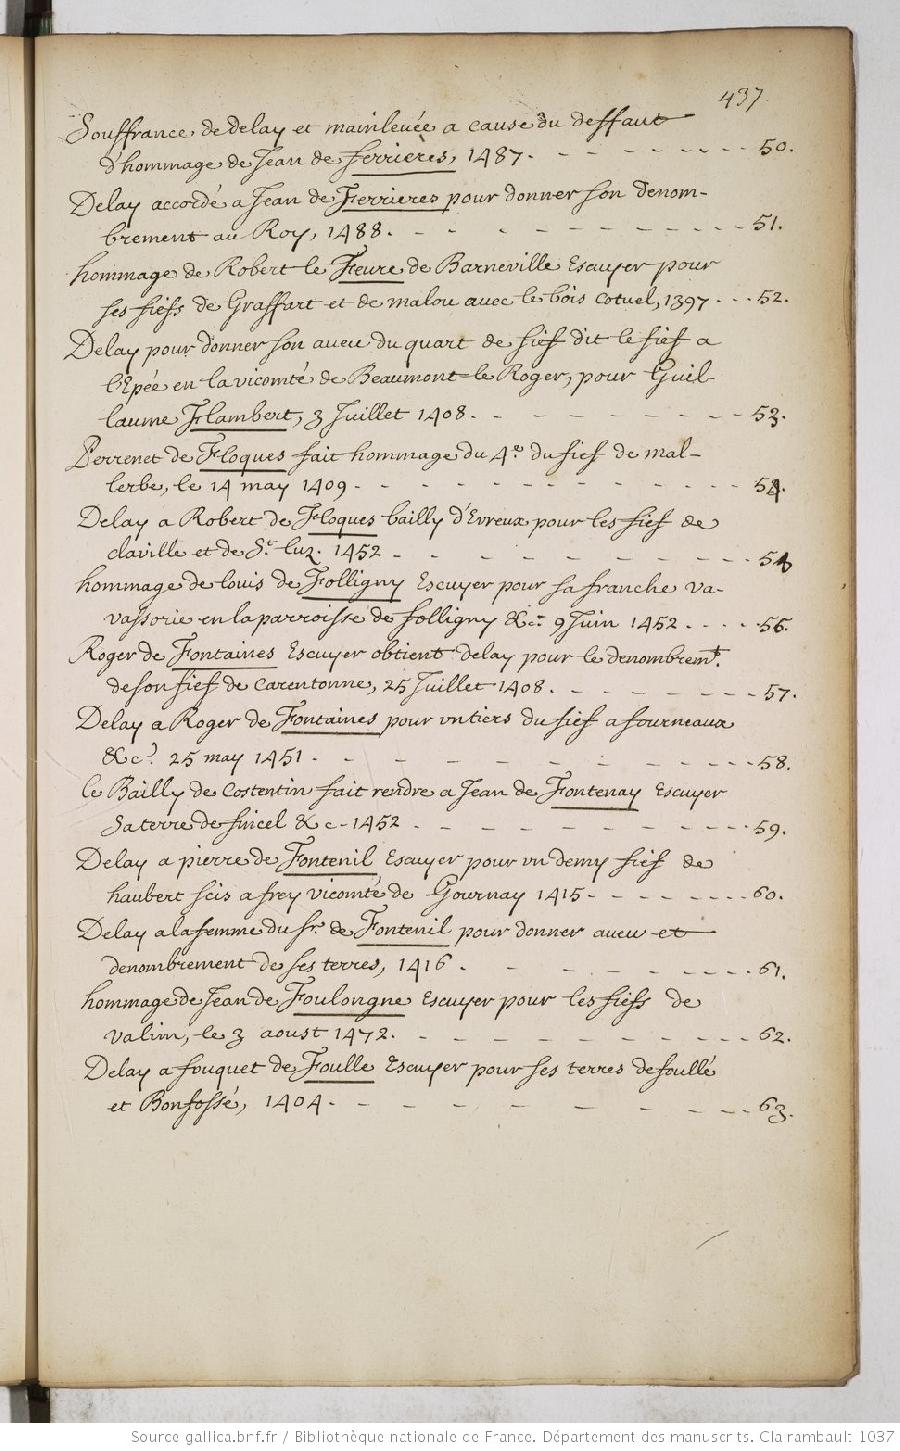 437.
Souffrance de delay et mainleuée a cause du deffaut
d'hommage de Jean de ferrieres, 1487. - - - - - - - - 50.
Delay accordé a Jean de Ferrieres pour donner son denom-
brement au Roy, 1488. - - - - - - - - - - 51.
hommage de Robert le Feure de Barneville Escuyer pour
ses fiefs de Graffart et de malou avec le bois cotuel, 1397 - - - 52.
Delay pour donner son aueu du quart de fief dit le fief a
l'Epée en la vicomté de Beaumont-le Roger, pour Guil
laume Flambert, 3 Juillet 1408. - - - - - - - - 53.
Perrenet de Floques fait hommage du 4e. du fief de mal-
lerbe, le 14 may 1409 - - - - - - - - - - 54.
Delay a Robert de Floques bailly d'Evreux pour les fief de
claville et de St. luz. 1452 - - - - - - - - - 54
hommage de louis de Folligny Escuyer pour sa franche va-
vassorie en la parroisse de folligny &c. 9 Juin 1452 - - - - 56.
Roger de Fontaines Escuyer obtient delay pour le denombremt.
de son fief de carentonne, 25 Juillet 1408. - - - - - - 57.
Delay a Roger de Fontaines pour vn tiers du fief a fourneaux
&c. 25 may 1451 - - - - - - - - - - - 58.
le Bailly de Costentin fait rendre a Jean de Fontenay Escuyer
sa terre de sincel &c - 1452 - - - - - - - - - 59.
Delay a pierre de Fontenil Escuyer pour vn demy fief de
haubert scis a frey vicomté de Gournay 1415 - - - - - - 60.
Delay a la femme du Sr. de Fontenil pour donner aueu et
denombrement de ses terres, 1416. - - - - - - - 61.
hommage de Jean de Foulongne Escuyer pour les fiefs de
valim, le 3 aoust 1472. - - - - - - - - - - 62.
Delay a fouquet de Foulle Escuyer pour ses terres de foullé
et Bonfossé, 1404. - - - - - - - - - - - 63.
Source gallica.bnf.fr / Bibliothèque nationale de France. Département des manuscrits. Clairambault 1037